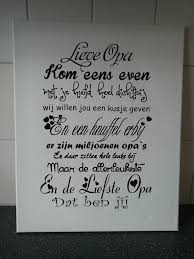 Lieve Opa
Kom eens even
met je hoofd heel dichtbij
wij willen jou een kusje geven
En een knuffel erbij
er zijn miljoenen opa's
En daar zitten hele leuke bij
Maar de allerleukste
En de Liefste Opa
Dat ben jij!